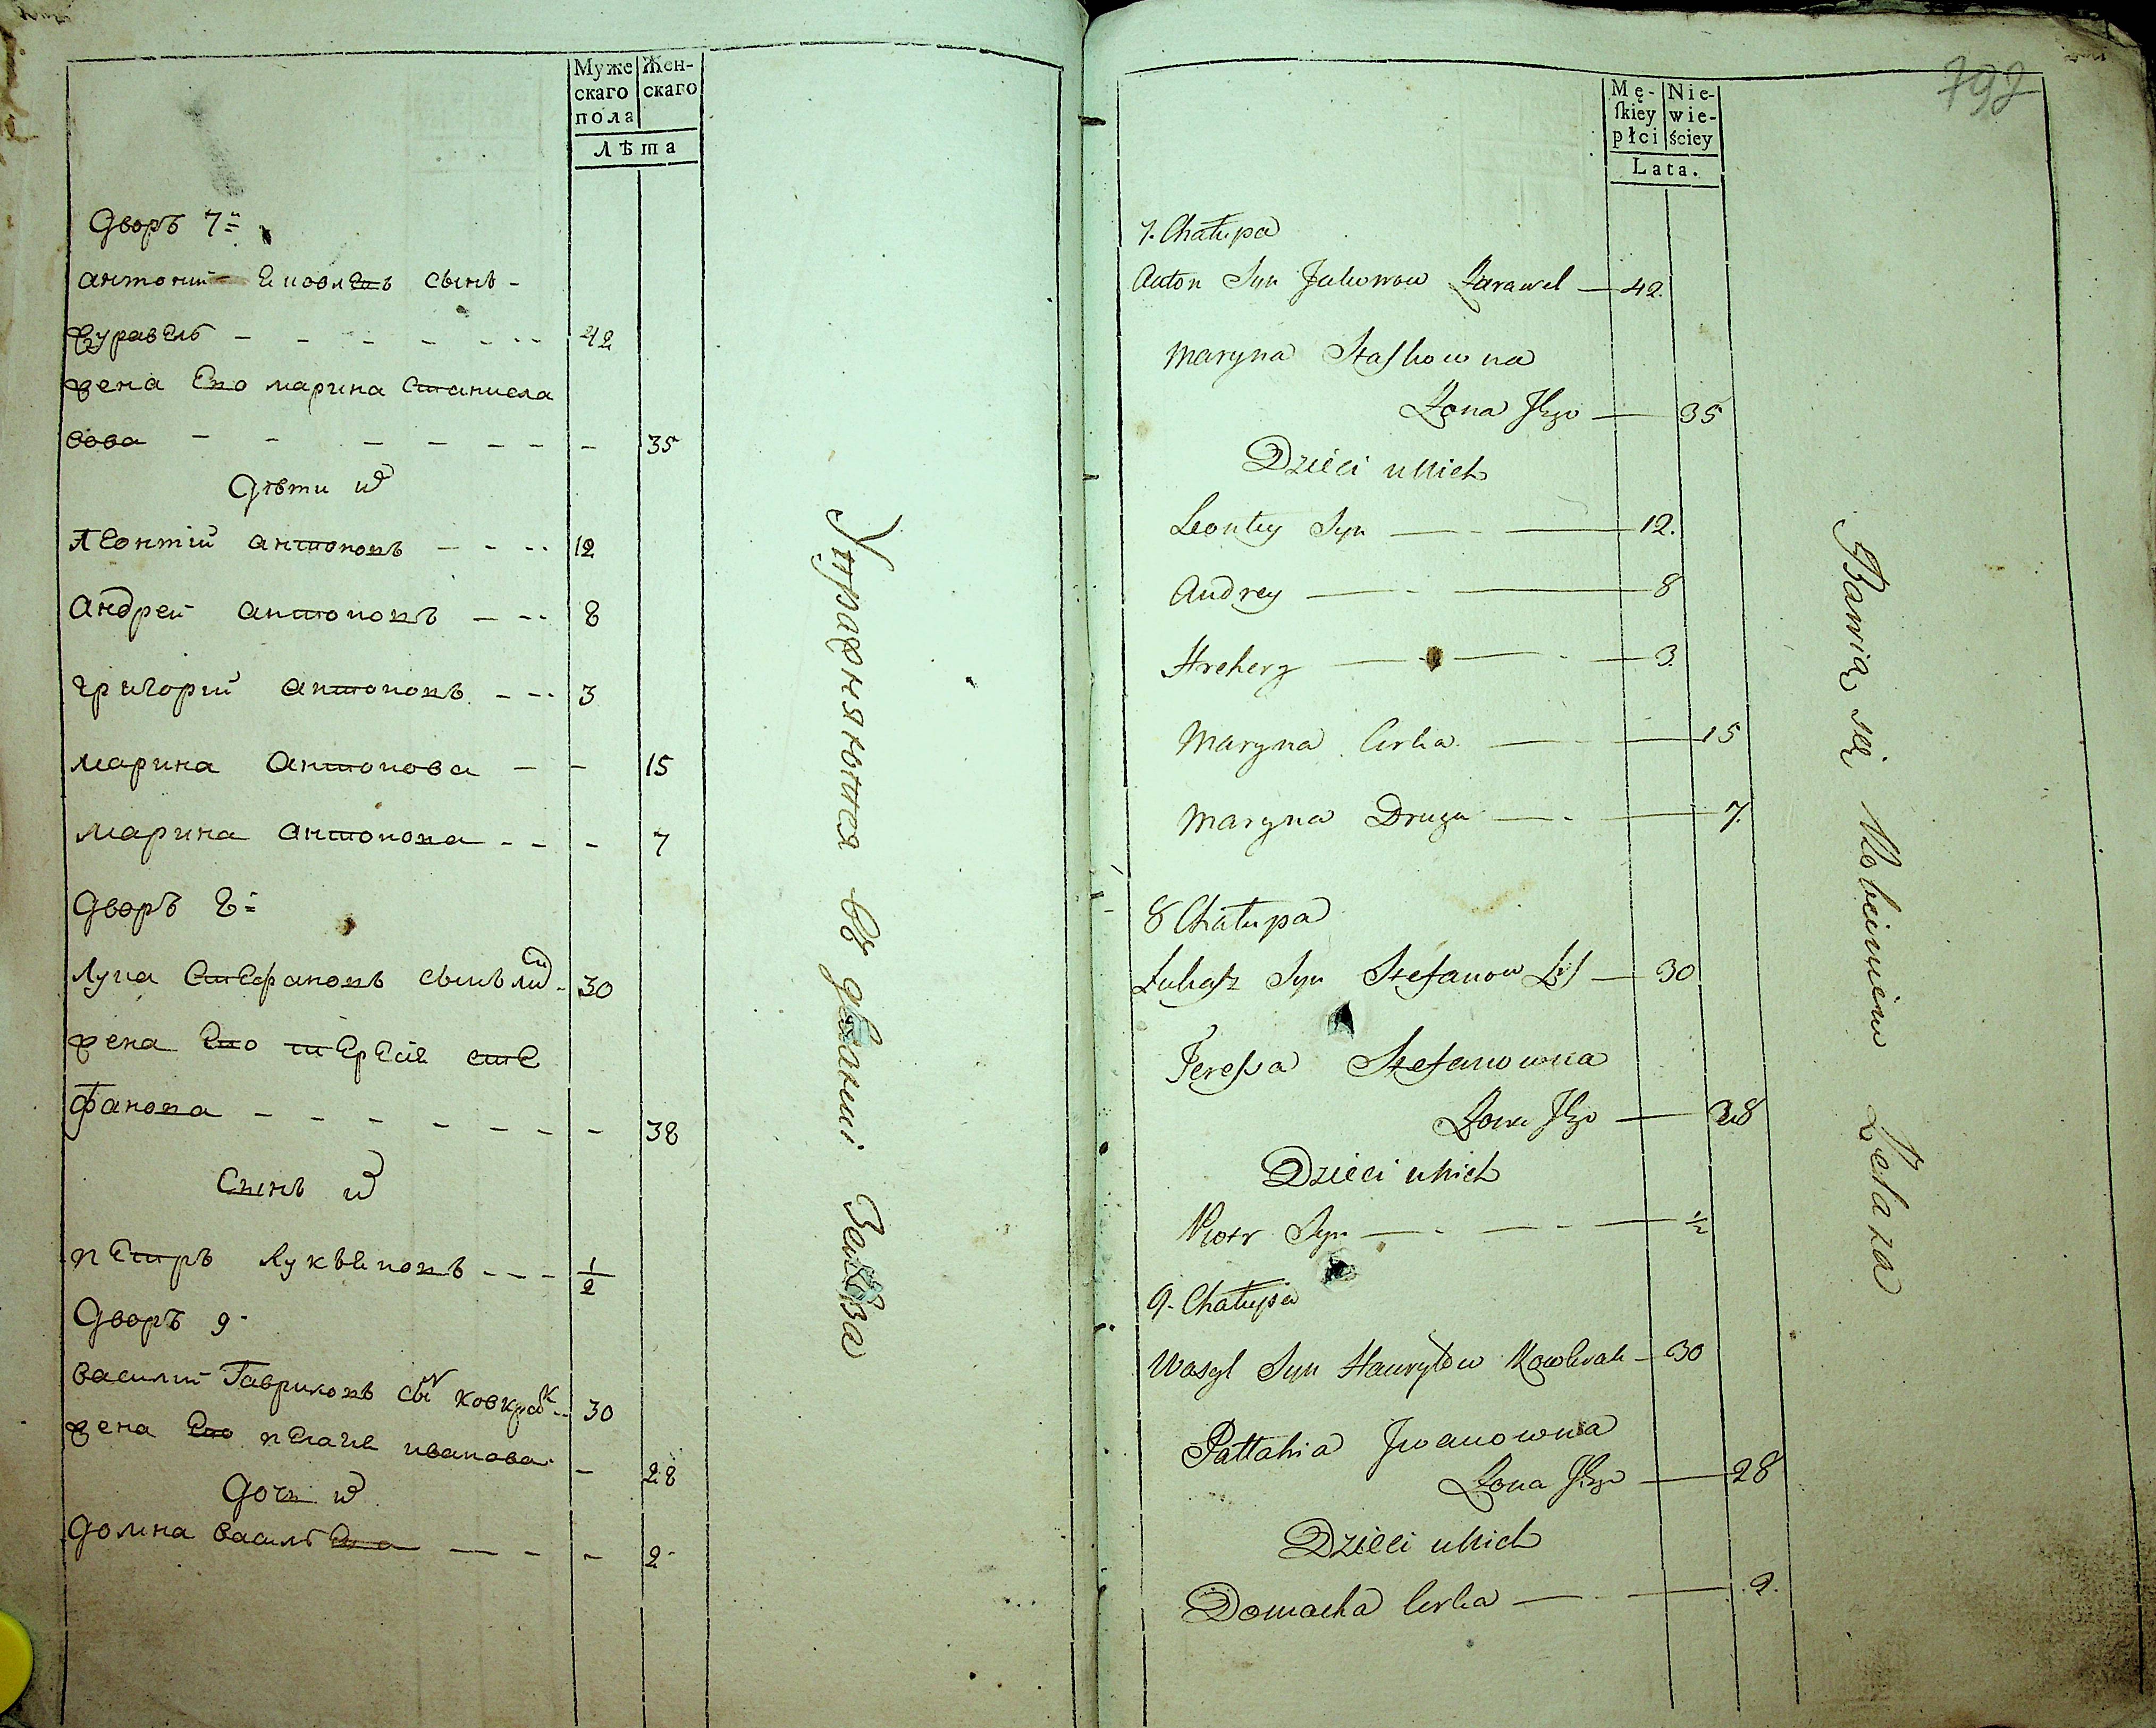 Муже Жен-
скаго скаго
пола
Лѣта
Дворъ 7й
антоний Яковлевъ сынъ -
Журавель - - - - - - 42
жена Его марина Станисла
вова - - - - - - - 35
Дѣти их
Леонтій антоновъ - - - 12
Андрей антоновъ - - - 8
григорий антоновъ - - - 3
марина Антонова - - 15
марина антонова - - - 7
Дворъ 8й
Лука Стефановъ сынъ лис - 30
жена Его тересія сте
фанова - - - - - - - 38
Сынъ их
петръ Лукъяновъ - - - 1/2
Дворъ 9-
василий Гавриловъ сын ковкрак - 30
жена Его пелагия иванова - 28
Дочь их
домна василева - - - 2
Упражняются въ деланіи Железа
792
Mę- Nie-
ſkiey wie-
płci ściey
Lata.
7. Chałupa
Anton Syn Jakowow Żurawel — 42.
Maryna Staſkowna
Żona Jego — 35
Dzieci u Nich
Leontey Syn — - — 12.
Andrey — - — 8
Hrehery — - — - — 3.
Maryna Corka. — - — 15
Maryna Druga — - — 7.
8 Chałupa
Łukaſz Syn Stefanow Liſ — 30
Tereſsa Stefanowna
Żona Jego — 38
Dzieci u Nich
Piotr Syn — - — - — 1/2
9. Chałupa
Wasyl Syn Hawryłow Kowkrak — 30
Pallahia Jwanowna
Żona Jego — 28
Dzieci u Nich
Domacha Corka — - — 2.
Bawią się Robieniem Żelaza